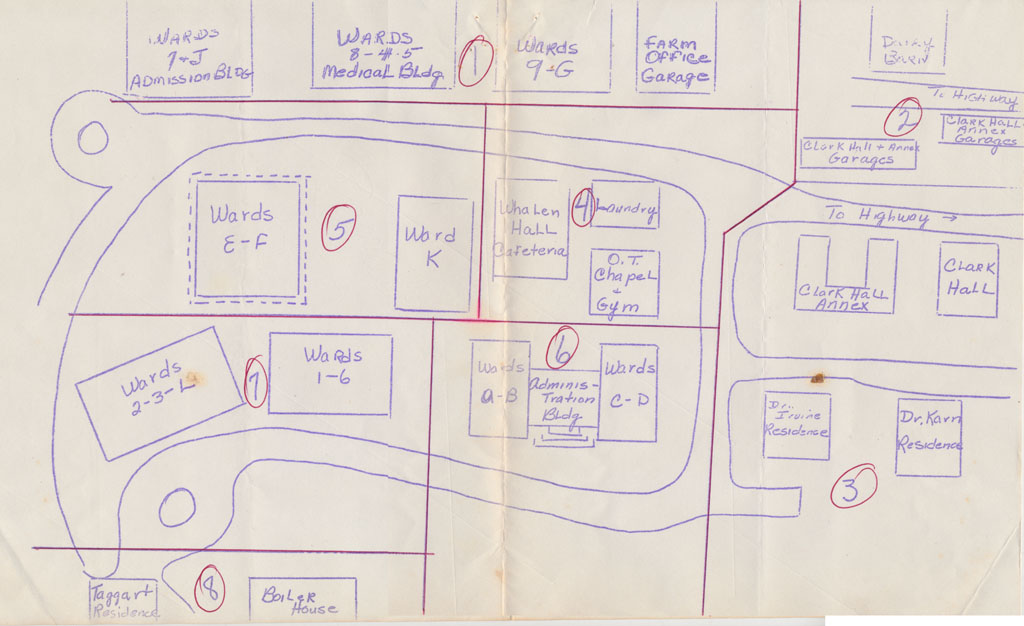 WARDS
7+J
ADMISSION BLDG
WARDS
8-4-5
Medical Bldg.
1
Wards
9-G
FARM
OFFICE
GARAGE
Dairy
BARN
To HIGHWAY
2
CLARK HALL
ANNEX
GARAGES
CLARK HALL + ANNEX
GARAGES
Wards
E-F
5
Ward
K
WHALEN
HALL
Cafeteria
4
Laundry
O.T.
Chapel
+
Gym
To Highway →
CLARK HALL
ANNEX
CLARK
HALL
Wards
2-3-L
7
WARDS
1-6
6
Wards
A-B
Adminis-
tration
Bldg
Wards
C-D
Dr.
Irvine
Residence
Dr. Karn
Residence
3
Taggart
Residence
8
BOILER
HOUSE